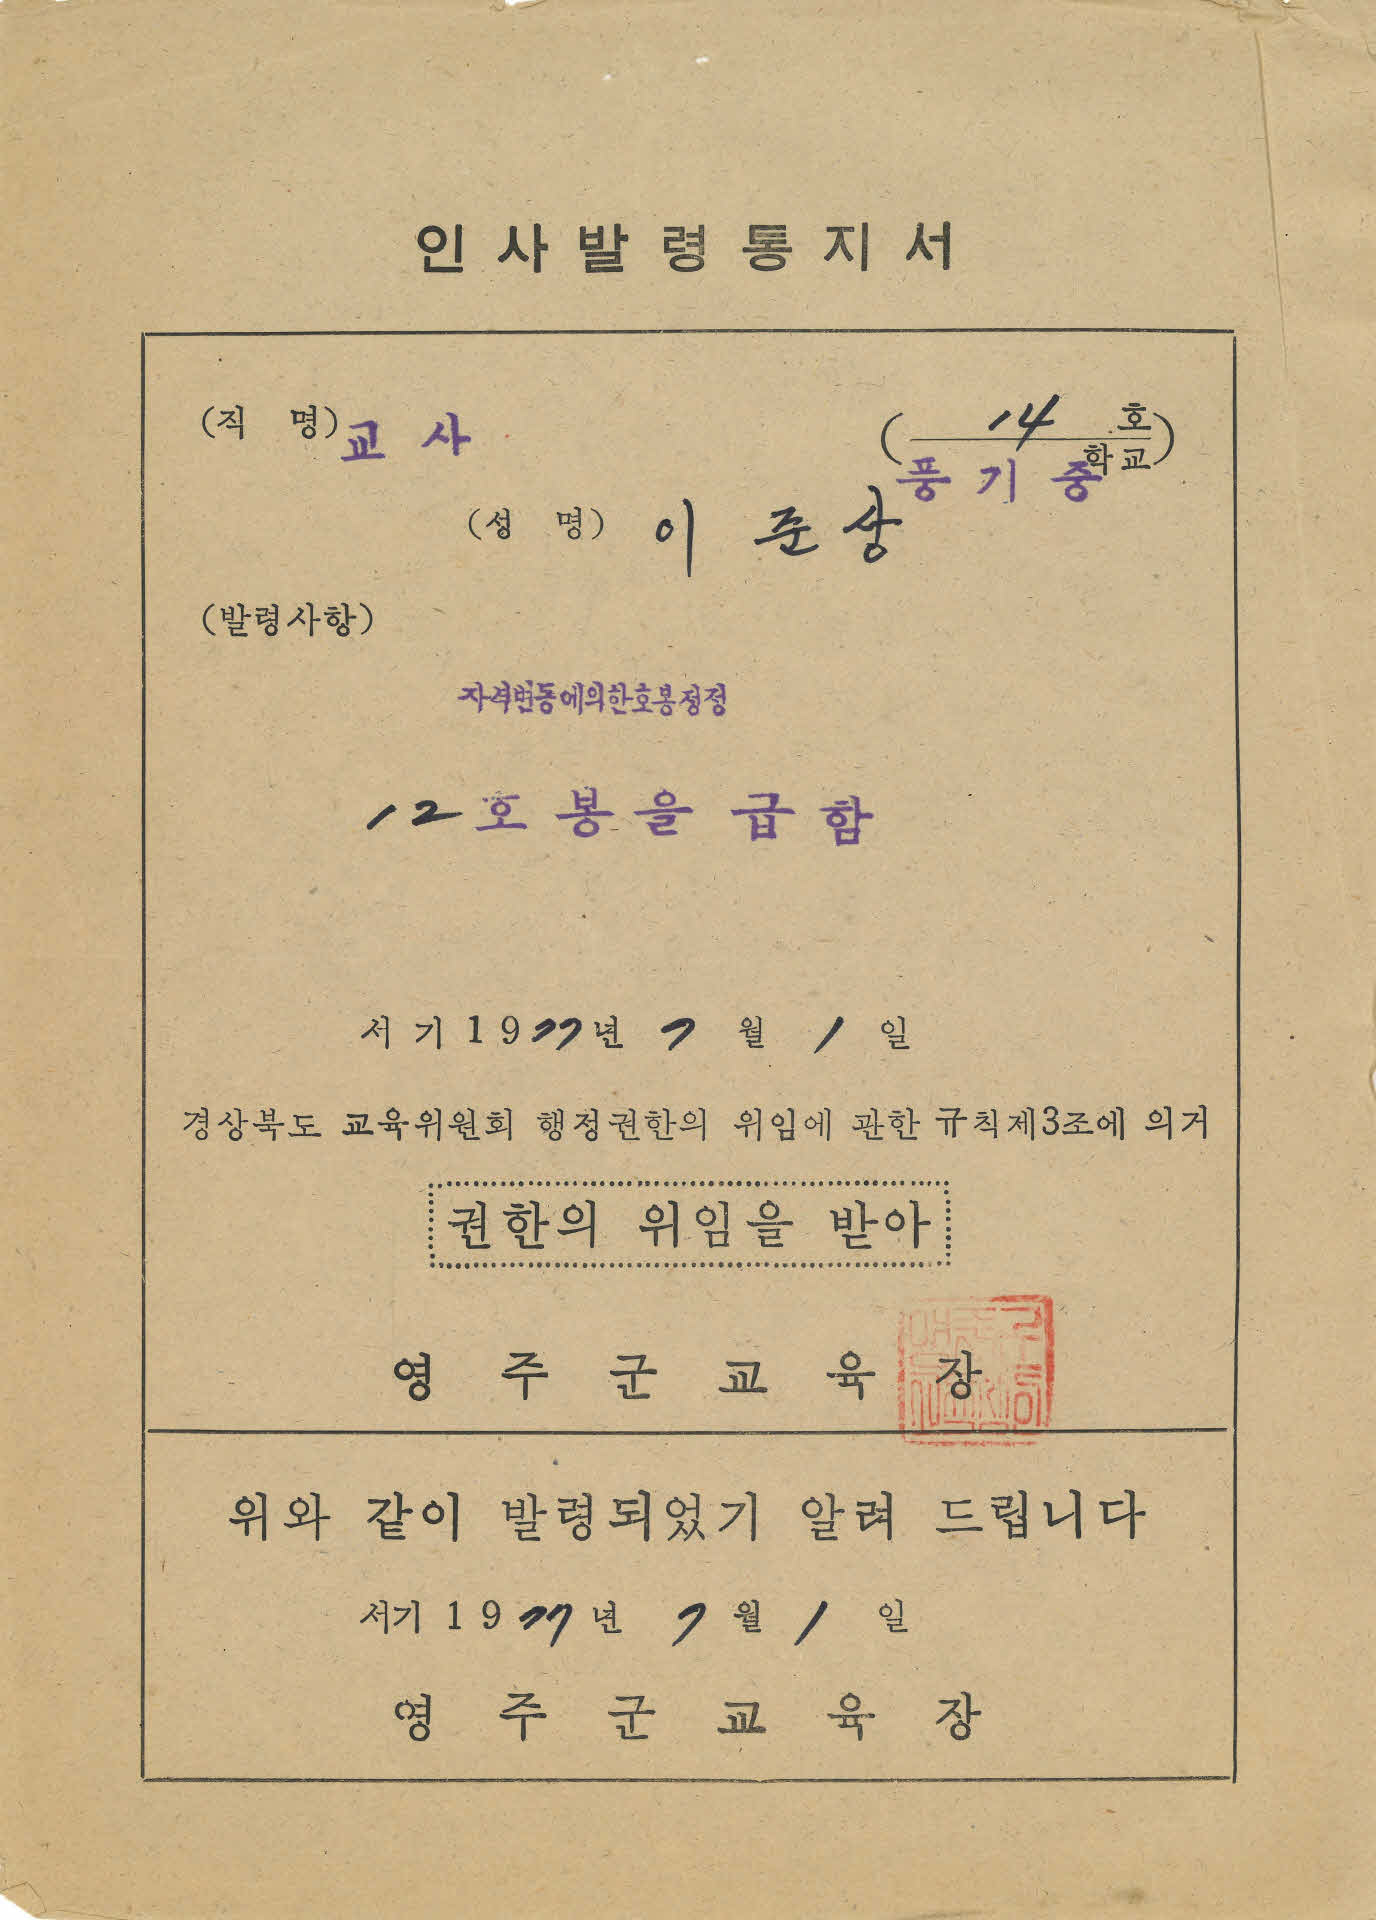 인사발령통지서
(직 명) 교사
(14 호
풍기중학교)
(성 명) 이준상
(발령사항)
자격변동에의한호봉정정
12호봉을 급함
서기 1977년 7월 1일
경상북도 교육위원회 행정권한의 위임에 관한 규칙제3조에 의거
권한의 위임을 받아
영주군교육장
위와 같이 발령되었기 알려 드립니다
서기 1977년 7월 1일
영주군교육장